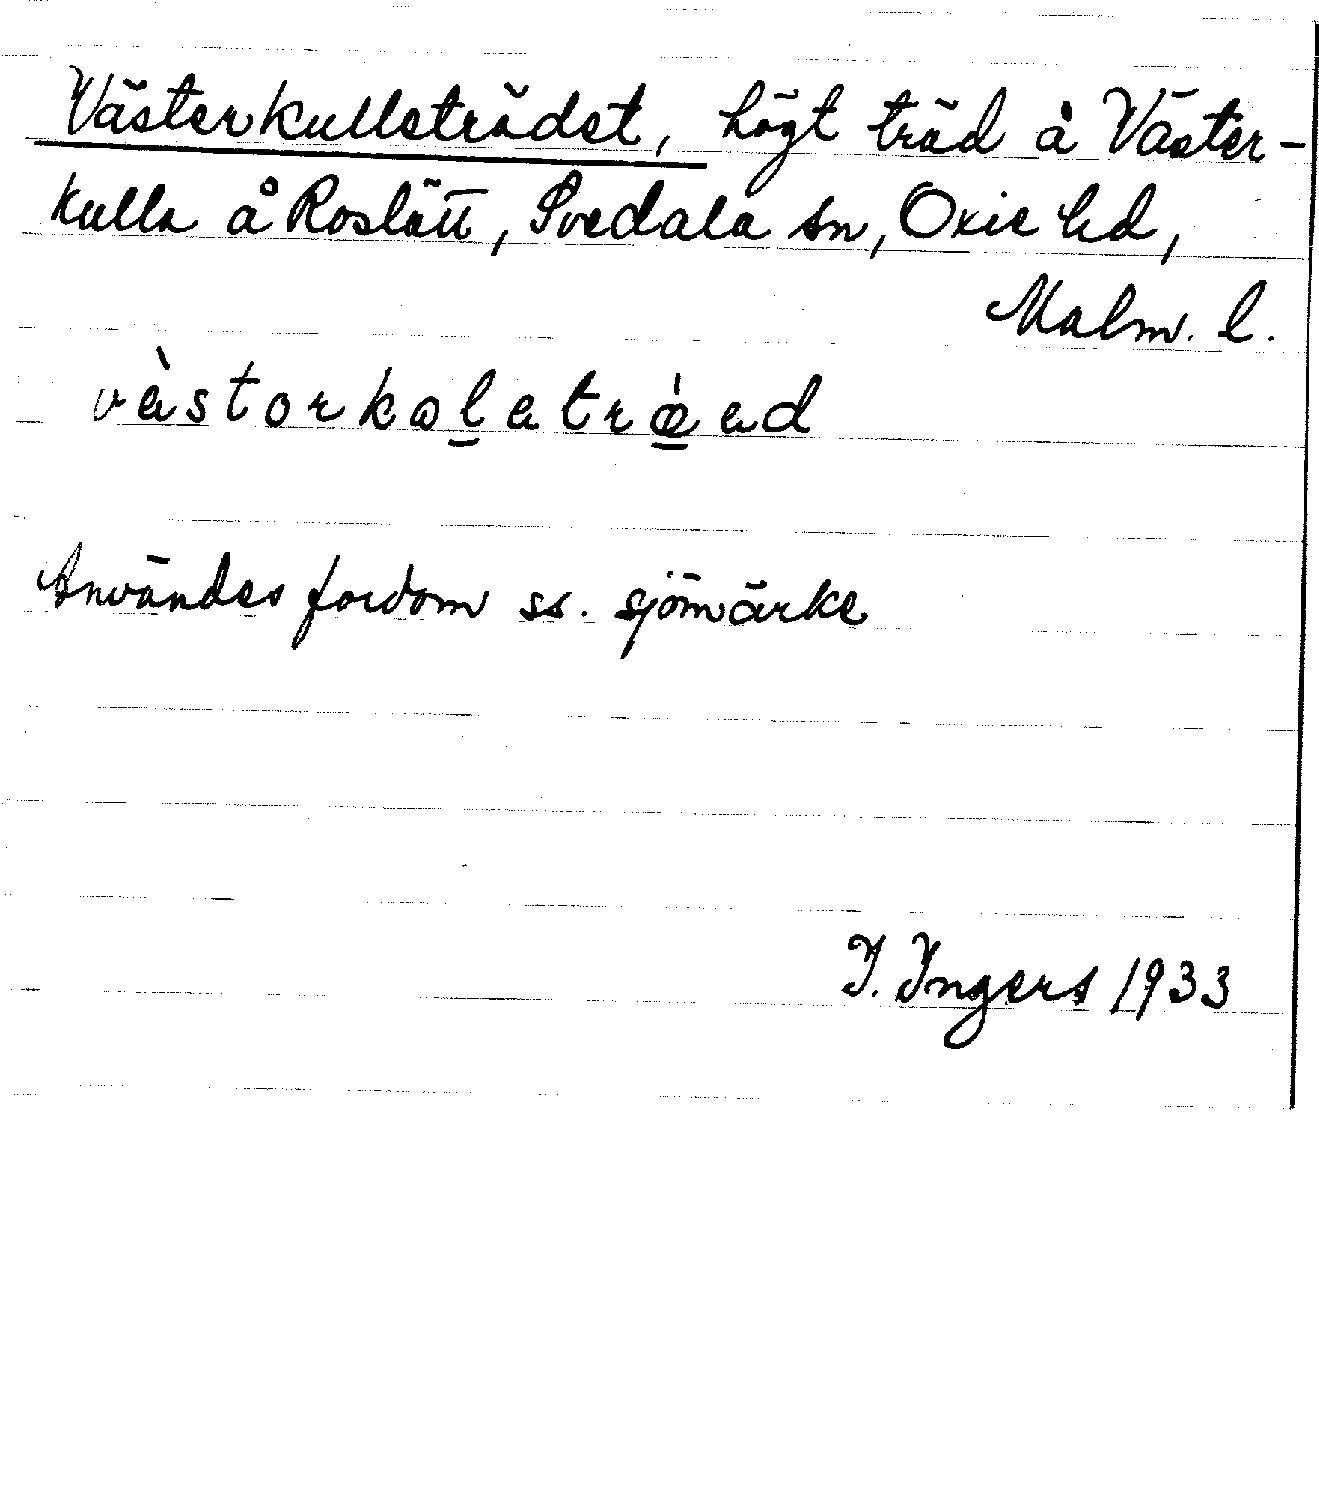 Västerkulleträdet, högt träd å Väster-
kulla å Roslätt, Svedala sn, Oxie hd,
Malm. l.
vàstorkoletrǿed
Användes fordom ss. sjömärke
I. Ingers 1933